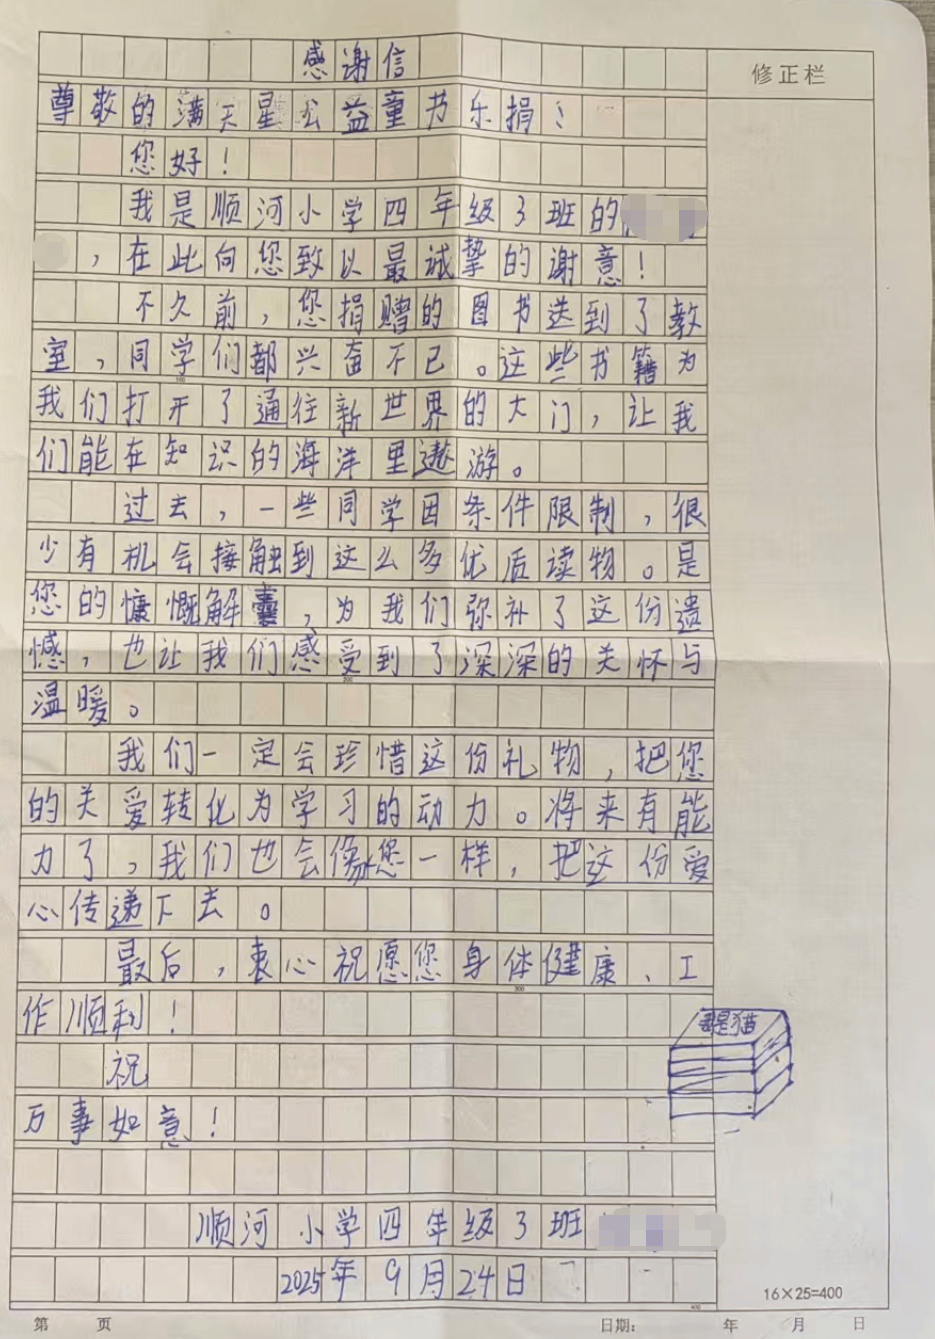 感谢信
修正栏
尊敬的满天星公益童书乐捐：
您好！
我是顺河小学四年级3班的
，在此向您致以最诚挚的谢意！
不久前，您捐赠的图书送到了教
室，同学们都兴奋不已。这些书籍为
我们打开了通往新世界的大门，让我
们能在知识的海洋里遨游。
过去，一些同学因条件限制，很
少有机会接触到这么多优质读物。是
您的慷慨解囊，为我们弥补了这份遗
憾，也让我们感受到了深深的关怀与
温暖。
我们一定会珍惜这份礼物，把您
的关爱转化为学习的动力。将来有能
力了，我们也会像您一样，把这份爱
心传递下去。
最后，衷心祝愿您身体健康、工
作顺利！
祝
万事如意！
顺河小学四年级3班
2025年9月24日
16×25=400
第 页 日期： 年 月 日